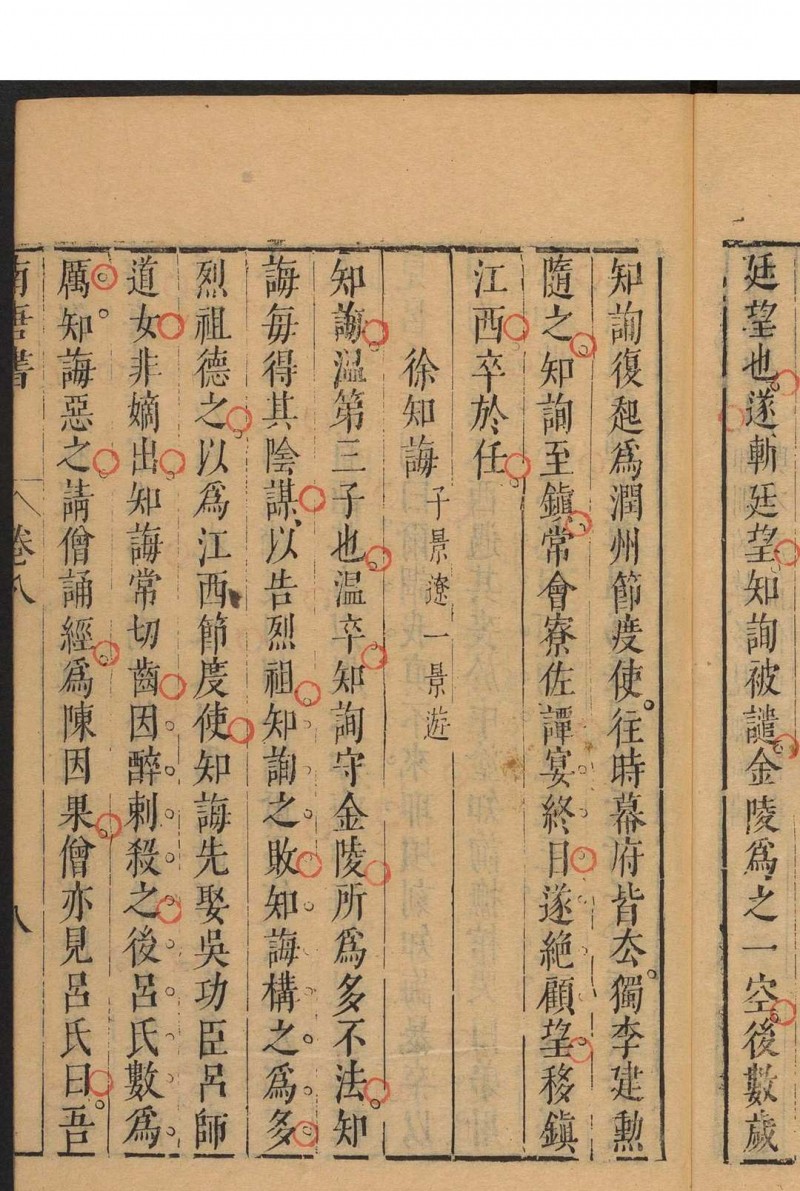 廷望也遂斬廷望知詢被譴金陵爲之一空後數歲
知詢復起爲潤州節度使往時幕府皆去獨李建勲
隨之知詢至鎭常會寮佐譚宴終日遂絶顧望移鎭
江西卒於任
徐知誨子景遼一景遊
知誨温第三子也温卒知詢守金陵所爲多不法知
誨每得其陰謀以告烈祖知詢之敗知誨構之爲多
烈祖德之以爲江西節度使知誨先娶吳功臣呂師
道女非嫡出知誨常切齒因醉刺殺之後呂氏數爲
厲知誨惡之請僧誦經爲陳因果僧亦見呂氏曰吾
南唐書 卷八 八